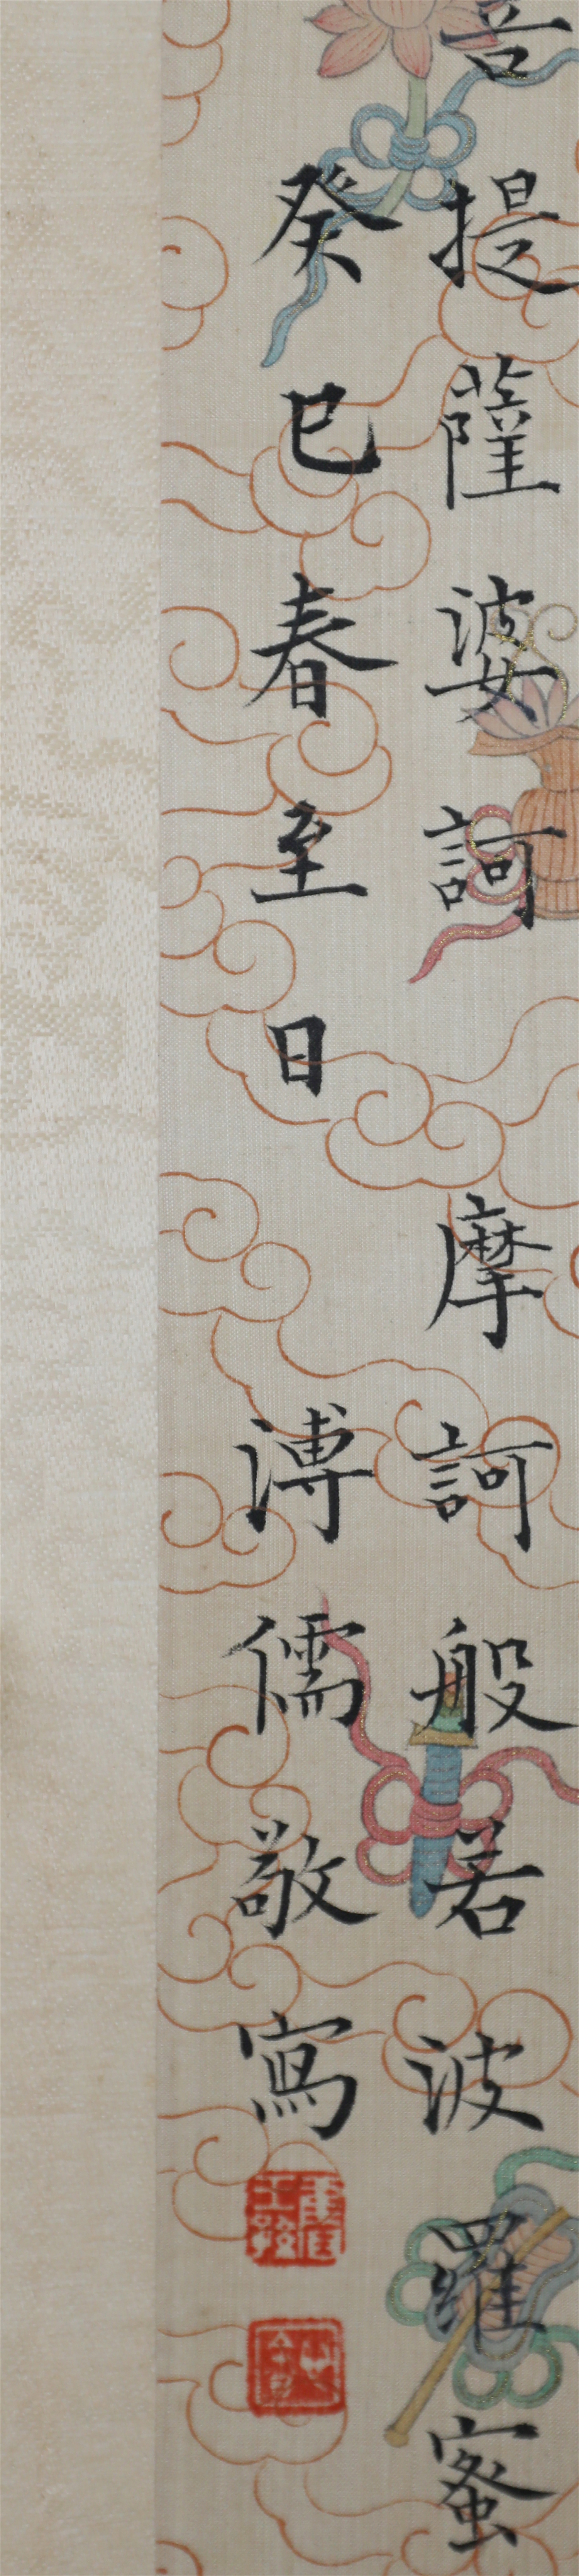 菩提薩婆訶 摩訶般若波羅蜜
癸巳春至日 溥儒敬寫